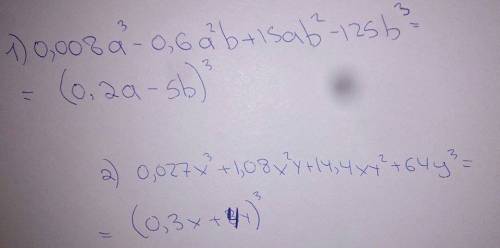 1) 0,008a³ - 0,6a²b + 15ab² - 125b³ =
= (0,2a - 5b)³
2) 0,027x³ + 1,08x²y + 14,4xy² + 64y³ =
= (0,3x + 4y)³